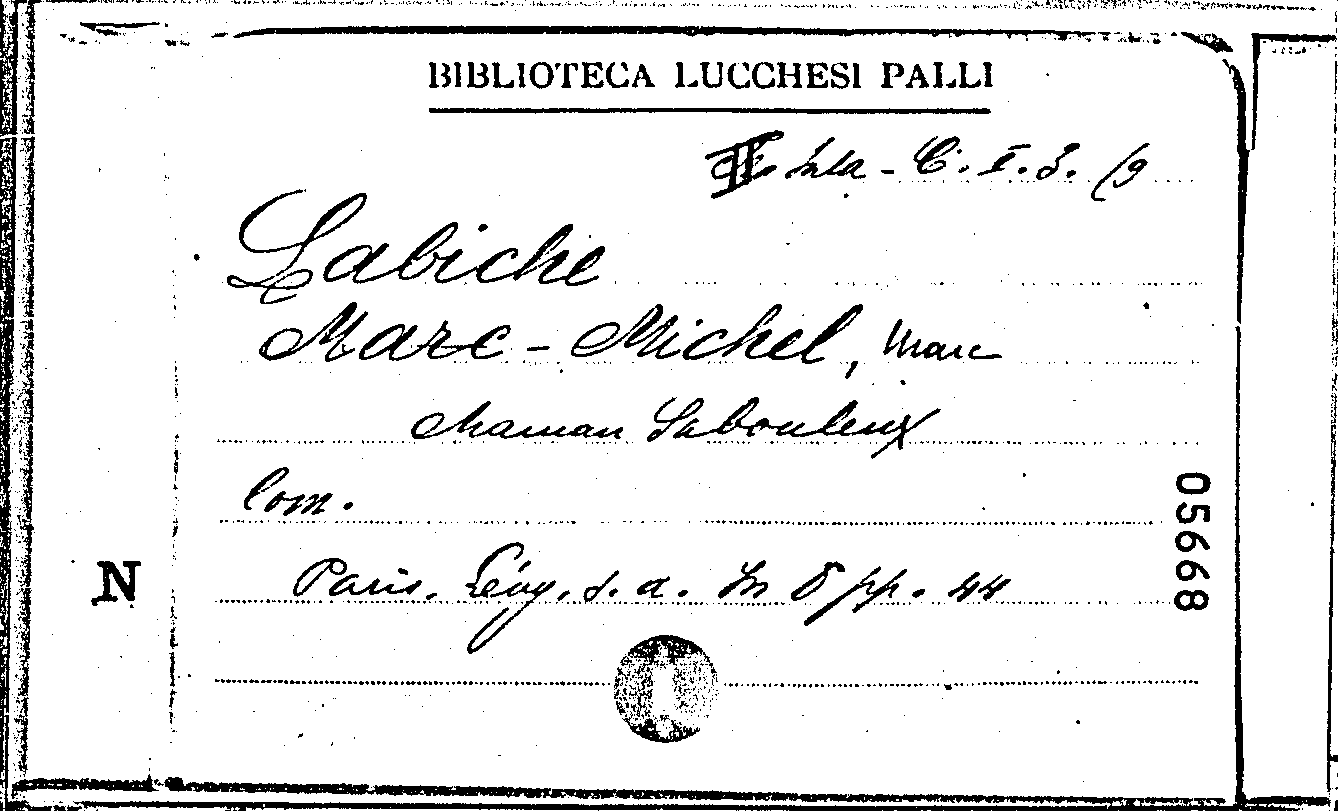 BIBLIOTECA LUCCHESI PALLI
C. I. 3. /9
Labiche
Marc-Michel, Marc
Maman Sabouleux
Com.
Paris. Lévy, s. a. In 8 pp. 44
N
05668